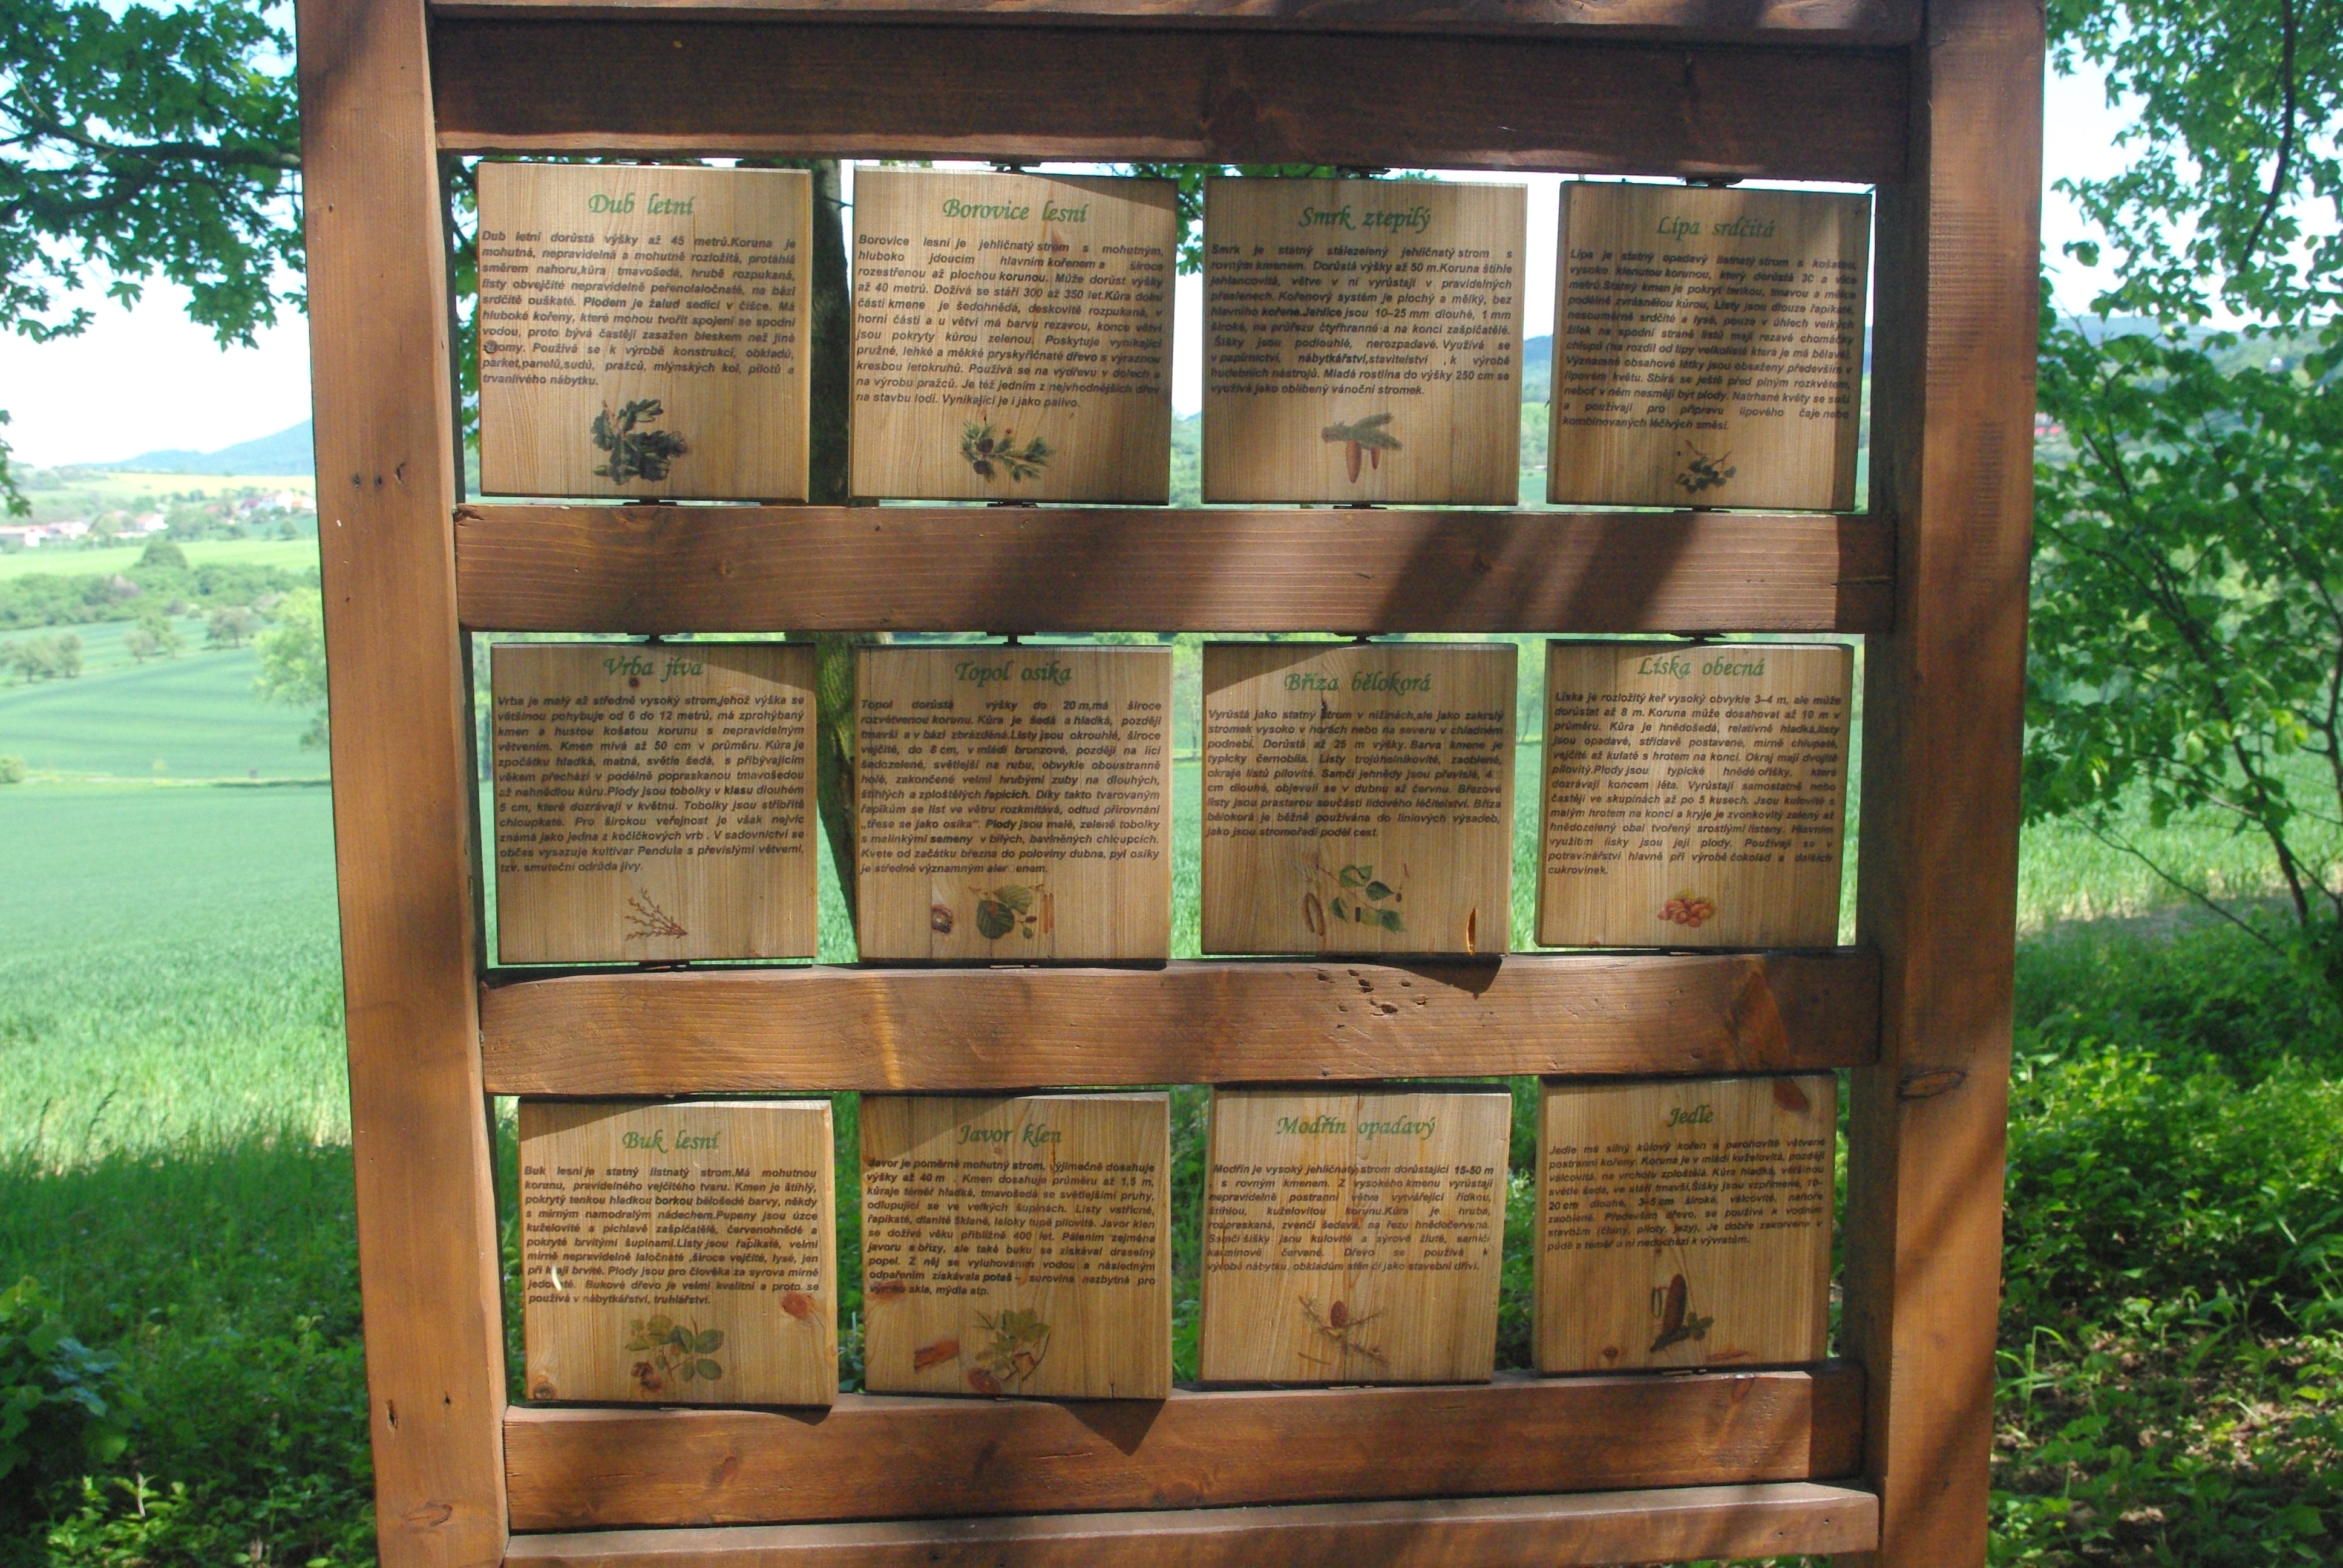 Dub letní
Dub letní dorůstá výšky až 45 metrů.Koruna je
mohutná, nepravidelná a mohutně rozložitá, protáhlá
směrem nahoru,kůra tmavošedá, hrubě rozpukaná,
listy obvejčité nepravidelně peřenolaločnaté, na bázi
srdčitě ouškaté. Plodem je žalud sedící v číšce. Má
hluboké kořeny, které mohou tvořit spojení se spodní
vodou, proto bývá častěji zasažen bleskem než jiné
stromy. Používá se k výrobě konstrukcí, obkladů,
parket,panelů,sudů, pražců, mlýnských kol, pilotů a
trvanlivého nábytku.
Borovice lesní
Borovice lesní je jehličnatý strom s mohutným,
hluboko jdoucím hlavním kořenem a široce
rozestřenou až plochou korunou. Může dorůst výšky
až 40 metrů. Dožívá se stáří 300 až 350 let.Kůra dolní
části kmene je šedohnědá, deskovitě rozpukaná, v
horní části a u větví má barvu rezavou, konce větví
jsou pokryty kůrou zelenou. Poskytuje vynikající
pružné, lehké a měkké pryskyřičnaté dřevo s výraznou
kresbou letokruhů. Používá se na výdřevu v dolech a
na výrobu pražců. Je též jedním z nejvhodnějších dřev
na stavbu lodí. Vynikající je i jako palivo.
Smrk ztepilý
Smrk je statný stálezelený jehličnatý strom s
rovným kmenem. Dorůstá výšky až 50 m.Koruna štíhle
jehlancovitá, větve v ní vyrůstají v pravidelných
přeslenech. Kořenový systém je plochý a mělký, bez
hlavního kořene.Jehlice jsou 10–25 mm dlouhé, 1 mm
široké, na průřezu čtyřhranné a na konci zašpičatělé.
Šišky jsou podlouhlé, nerozpadavé. Využívá se
v papírnictví, nábytkářství,stavitelství , k výrobě
hudebních nástrojů. Mladá rostlina do výšky 250 cm se
využívá jako oblíbený vánoční stromek.
Lípa srdčitá
Lípa je statný opadavý listnatý strom s košatou,
vysoko klenutou korunou, který dorůstá 30 a více
metrů.Statný kmen je pokryt tenkou, tmavou a mělce
podélně zvrásnělou kůrou, Listy jsou dlouze řapíkaté,
nesouměrně srdčité a lysé, pouze v úhlech velkých
žilek na spodní straně listů mají rezavé chomáčky
chlupů (na rozdíl od lípy velkolisté která je má bělavé).
Významné obsahové látky jsou obsaženy především v
lipovém květu. Sbírá se ještě před plným rozkvětem,
neboť v něm nesmějí být plody. Natrhané květy se suší
a používají pro přípravu lipového čaje nebo
kombinovaných léčivých směsí.
Vrba jíva
Vrba je malý až středně vysoký strom,jehož výška se
většinou pohybuje od 6 do 12 metrů, má zprohýbaný
kmen a hustou košatou korunu s nepravidelným
větvením. Kmen mívá až 50 cm v průměru. Kůra je
zpočátku hladká, matná, světle šedá, s přibývajícím
věkem přechází v podélně popraskanou tmavošedou
až nahnědlou kůru.Plody jsou tobolky v klasu dlouhém
5 cm, které dozrávají v květnu. Tobolky jsou stříbřitě
chloupkaté. Pro širokou veřejnost je však nejvíc
známá jako jedna z kočičkových vrb . V sadovnictví se
občas vysazuje kultivar Pendula s převislými větvemi,
tzv. smuteční odrůda jívy.
Topol osika
Topol dorůstá výšky do 20 m,má široce
rozvětvenou korunu. Kůra je šedá a hladká, později
tmavší a v bázi zbrázděná.Listy jsou okrouhlé, široce
vejčité, do 8 cm, v mládí bronzové, později na líci
šedozelené, světlejší na rubu, obvykle oboustranně
holé, zakončené velmi hrubými zuby na dlouhých,
štíhlých a zploštělých řapících. Díky takto tvarovaným
řapíkům se list ve větru rozkmitává, odtud přirovnání
„třese se jako osika“. Plody jsou malé, zelené tobolky
s malinkými semeny v bílých, bavlněných chloupcích.
Kvete od začátku března do poloviny dubna, pyl osiky
je středně významným aler enem.
Bříza bělokorá
Vyrůstá jako statný strom v nížinách,ale jako zakrslý
stromek vysoko v horách nebo na severu v chladném
podnebí. Dorůstá až 25 m výšky. Barva kmene je
typicky černobílá. Listy trojúhelníkovité, zaoblené,
okraje listů pilovité. Samčí jehnědy jsou převislé, 4
cm dlouhé, objevují se v dubnu až červnu. Březové
listy jsou prastarou součástí lidového léčitelství. Bříza
bělokorá je běžně používána do liniových výsadeb,
jako jsou stromořadí podél cest.
Líska obecná
Líska je rozložitý keř vysoký obvykle 3–4 m, ale může
dorůstat až 8 m. Koruna může dosahovat až 10 m v
průměru. Kůra je hnědošedá, relativně hladká,listy
jsou opadavé, střídavě postavené, mírně chlupaté,
vejčité až kulaté s hrotem na konci. Okraj mají dvojitě
pilovitý.Plody jsou typické hnědé oříšky, které
dozrávají koncem léta. Vyrůstají samostatně nebo
častěji ve skupinách až po 5 kusech. Jsou kulovité s
malým hrotem na konci a kryje je zvonkovitý zelený až
hnědozelený obal tvořený srostlými listeny. Hlavním
využitím lísky jsou její plody. Používají se v
potravinářství hlavně při výrobě čokolád a dalších
cukrovinek.
Buk lesní
Buk lesní je statný listnatý strom.Má mohutnou
korunu, pravidelného vejčitého tvaru. Kmen je štíhlý,
pokrytý tenkou hladkou borkou bělošedé barvy, někdy
s mírným namodralým nádechem.Pupeny jsou úzce
kuželovité a pichlavě zašpičatělé, červenohnědé a
pokryté brvitými šupinami.Listy jsou řapíkaté, velmi
mírně nepravidelně laločnaté ,široce vejčité, lysé, jen
při kraji brvité. Plody jsou pro člověka za syrova mírně
jedovaté. Bukové dřevo je velmi kvalitní a proto se
používá v nábytkářství, truhlářství.
Javor klen
Javor je poměrně mohutný strom, výjimečně dosahuje
výšky až 40 m . Kmen dosahuje průměru až 1,5 m,
kůra je téměř hladká, tmavošedá se světlejšími pruhy,
odlupující se ve velkých šupinách. Listy vstřícné,
řapíkaté, dlanitě 5klané, laloky tupě pilovité. Javor klen
se dožívá věku přibližně 400 let. Pálením zejména
javoru a břízy, ale také buku se získával draselný
popel. Z něj se vyluhováním vodou a následným
odpařením získávala potaš – surovina nezbytná pro
výrobu skla, mýdla atp.
Modřín opadavý
Modřín je vysoký jehličnatý strom dorůstající 15-50 m
s rovným kmenem. Z vysokého kmenu vyrůstají
nepravidelně postranní větve vytvářející řídkou,
štíhlou, kuželovitou korunu.Kůra je hrubá,
rozpraskaná, zvenčí šedavá, na řezu hnědočervená.
Samčí šišky jsou kulovité a sýrově žluté, samičí
karmínově červené. Dřevo se používá k
výrobě nábytku, obkladům stěn či jako stavební dříví.
Jedle
Jedle má silný kůlový kořen s parohovitě větvené
postranní kořeny. Koruna je v mládí kuželovitá, později
válcovitá, na vrcholu zploštělá. Kůra hladká, většinou
světle šedá, ve stáří tmavší.Šišky jsou vzpřímené, 10–
20 cm dlouhé, 3–5 cm široké, válcovité, nahoře
zaoblené. Především dřevo, se používá k vodním
stavbám (čluny, piloty, jezy). Je dobře zakořeněná v
půdě a téměř u ní nedochází k vývratům.